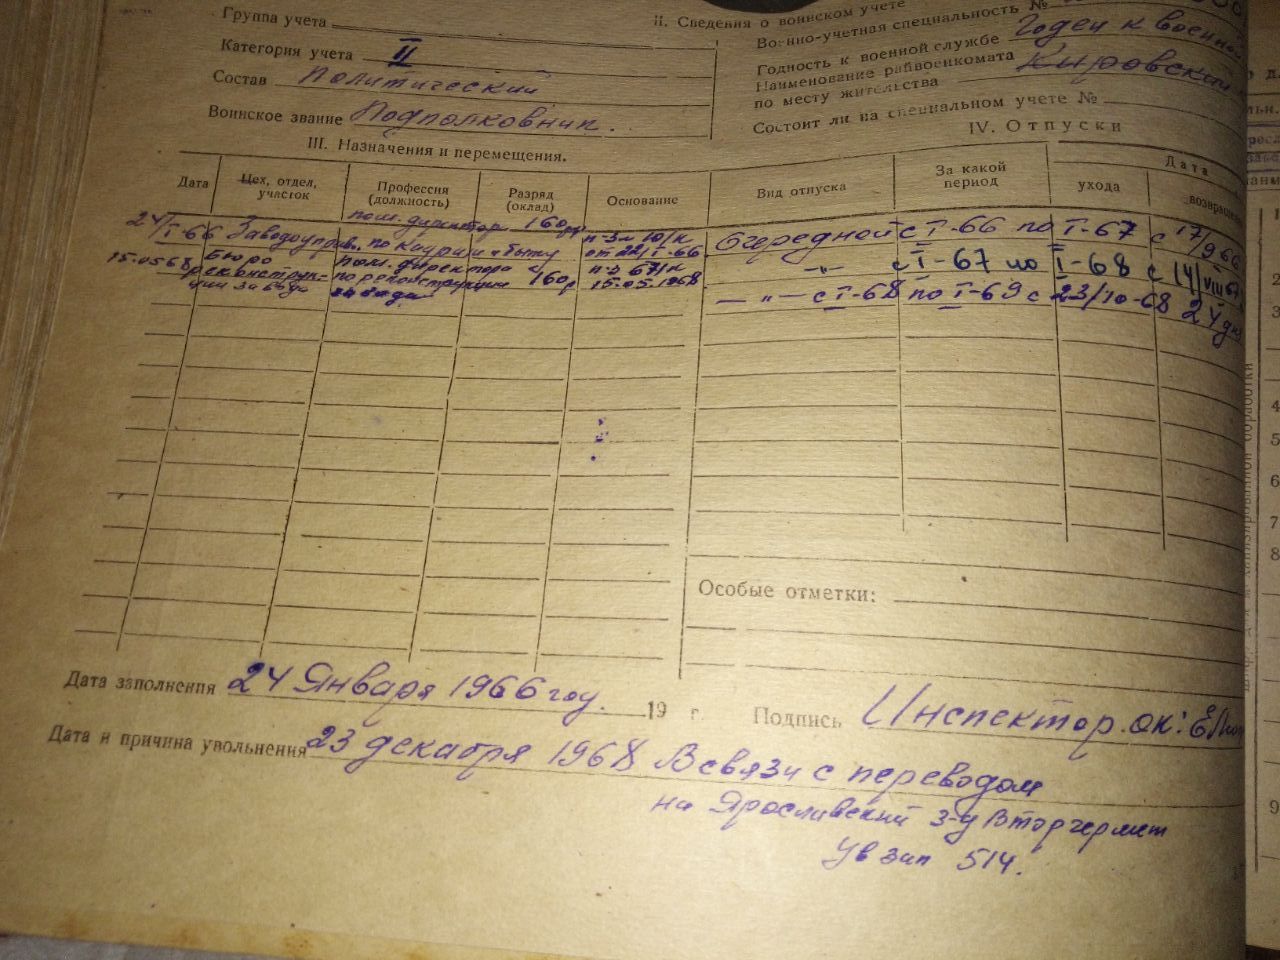 Группа учета
Категория учета II
Состав Политический
Воинское звание Подполковник.
II. Сведения о воинском учете
Военно-учетная специальность №
Годность к военной службе Годен к военной
Наименование райвоенкомата
по месту жительства Кировский
Состоит ли на специальном учете №
III. Назначения и перемещения.
Дата Цех, отдел, участок Профессия (должность) Разряд (оклад) Основание
24/I-66 Заводоуправ. пом. директор по кадрам и быту 160р п-з 10/к от 24/I-66.
15.05 68 Бюро реконструкции завода пом. директора по реконструкции завода 160р п-з 67/к 15.05.1968
IV. Отпуски
Вид отпуска За какой период Дата ухода
Очередной с I-66 по I-67 с 17/9 66
-"- с I-67 по I-68 с 14/VIII 67
-"- с I-68 по I-69 с 23/10-68 24 дн
Особые отметки:
Дата заполнения 24 Января 1966 году. 19 г. Подпись Инспектор ок:
Дата и причина увольнения 23 декабря 1968 В связи с переводом
на Ярославский з-д Вторчермет
514.